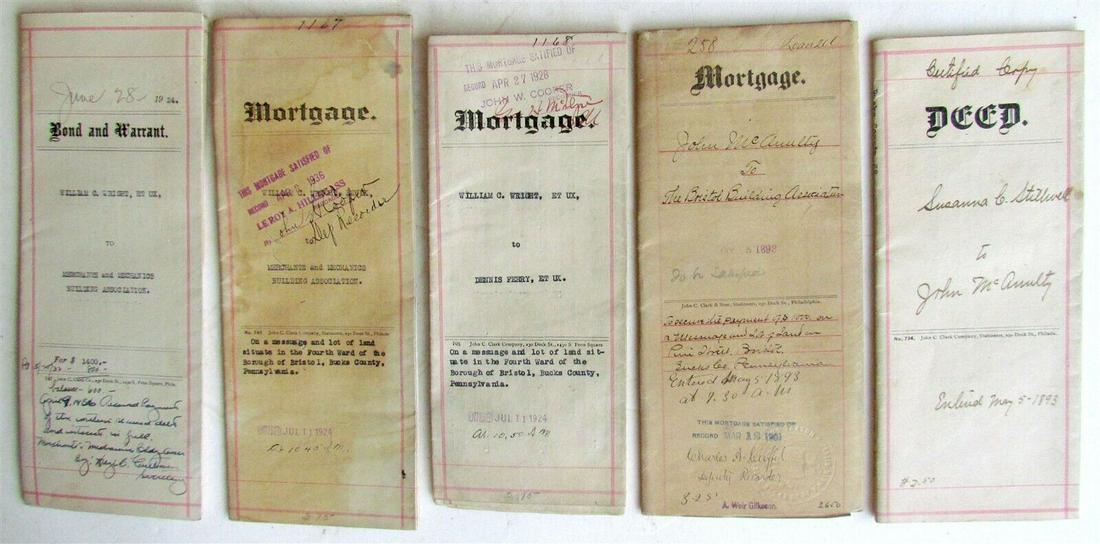 June 28 1924.
Bond and Warrant.
WILLIAM C. WRIGHT, ET UX,
TO
MERCHANTS and MECHANICS
BUILDING ASSOCIATION.
For $ 1400.
balance 600
April 9, 1936 Received payment
of the within named debt
and interest in full
Secretary
1167
Mortgage.
THIS MORTGAGE SATISFIED OF
RECORD 1936
LEROY A.
WILLIAM C. WRIGHT, ET UX,
John W Cooper
to
Dep Recorder
MERCHANTS and MECHANICS
BUILDING ASSOCIATION.
John C. Clark Company, Stationers, 230 Dock St., Philada.
On a messuage and lot of land
situate in the Fourth Ward of the
Borough of Bristol, Bucks County,
Pennsylvania.
JUL 11 1924
At 10 40 A.M.
1168
THIS MORTGAGE SATISFIED OF
RECORD APR 27 1928
JOHN W. COOPER
Mortgage.
WILLIAM C. WRIGHT, ET UX,
to
DENNIS FERRY, ET UX.
John C. Clark Company, 230 Dock St., 1430 S. Penn Square
On a messuage and lot of land sit-
uate in the Fourth Ward of the
Borough of Bristol, Bucks County,
Pennsylvania.
JUL 11 1924
At. 10,50 A M
258
Mortgage.
John McAnulty
To
The Bristol Building Association
5 1893
To be Satisfied
John C. Clark & Sons, Stationers, 230 Dock St., Philadelphia.
To secure payment of $1000 on
a Messuage and lot of Land on
Pine Street, Bristol,
Bucks Co. Pennsylvania
Entered May 5 1893
at 9.30 A.M
THIS MORTGAGE SATISFIED OF
RECORD MAR
Charles A.
Deputy Recorder
A. Weir Gilkeson.
Certified Copy
DEED.
Susanna C. Stillwell
to
John McAnulty
No. 736. John C. Clark Company, Stationers, 230 Dock St., Philada.
Entered May 5-1893
$2.50